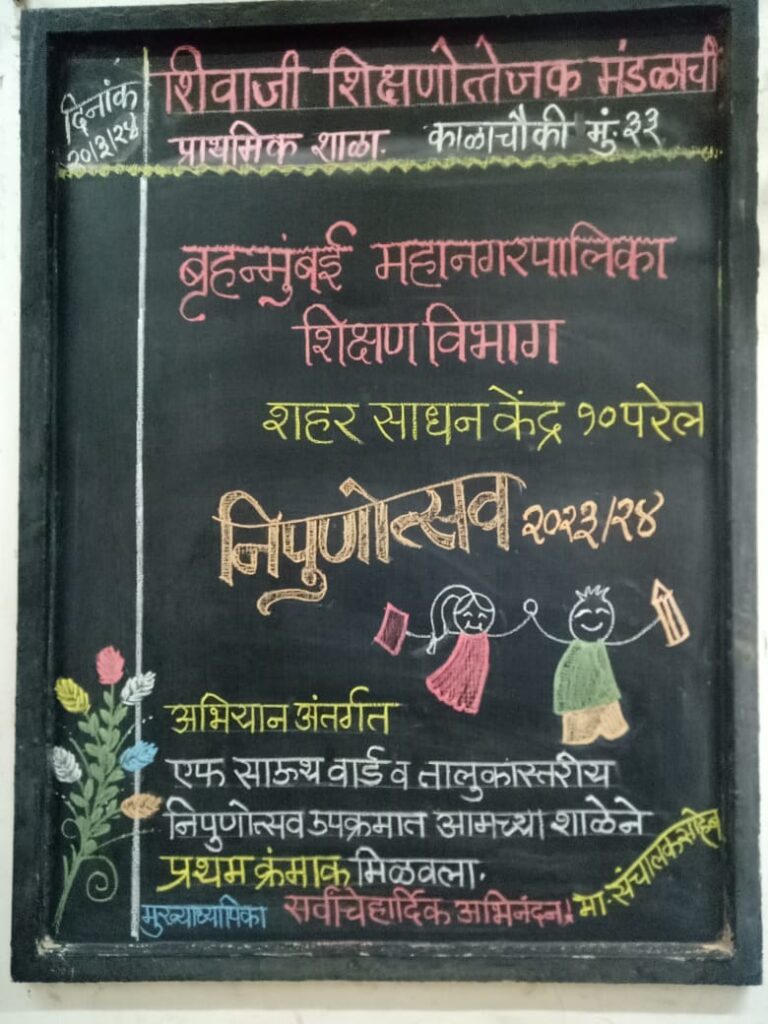 दिनांक
२०/३/२४
शिवाजी शिक्षणोत्तेजक मंडळाची
प्राथमिक शाळा. काळाचौकी मुं.३३
बृहन्मुंबई महानगरपालिका
शिक्षण विभाग
शहर साधन केंद्र १० परेल
निपुणोत्सव २०२३/२४
अभियान अंतर्गत
एफ साऊथ वार्ड व तालुकास्तरीय
निपुणोत्सव उपक्रमात आमच्या शाळेने
प्रथम क्रंमाक मिळवला.
मुख्याध्यापिका सर्वांचे हार्दिक अभिनंदन! मा. संचालक साहेब